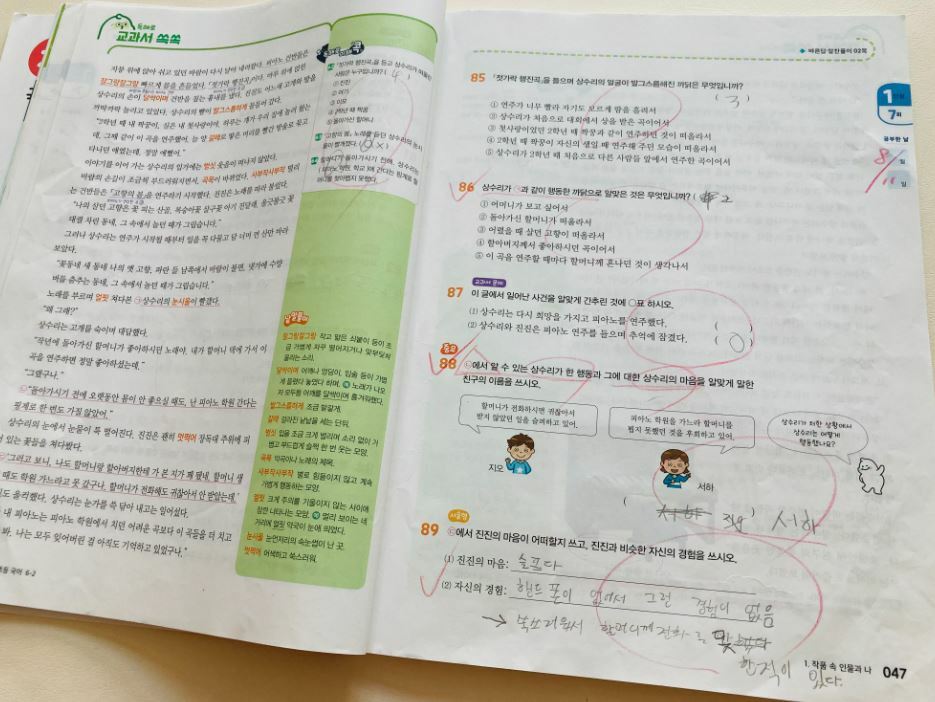 독해로
교과서 쏙쏙
지붕 위에 앉아 쉬고 있던 바람이 다시 날아 내려왔다. 피아노 건반들은
상수리의 손이 담싹이며 건반을 짚는
이야기를 이어 가는 상수리의 입가에는 벙싯 웃음이 떠나지 않았다.
는 건반들은 「고향의 봄」을 연주하기 시작했다. 진진은 노래를 따라 불렀다.
"나의 살던 고향은 꽃 피는 산골, 복숭아꽃 살구꽃 아기 진달래, 울긋불긋 꽃
대궐 차린 동네, 그 속에서 놀던 때가 그립습니다."
그러나 상수리는 연주가 시작될 때부터 입을 꼭 다물고 담 너머 먼 산만 바라
보았다.
"꽃동네 새 동네 나의 옛 고향, 파란 들 남쪽에서 바람이 불면, 냇가에 수양
버들 춤추는 동네, 그 속에서 놀던 때가 그립습니다."
노래를 부르며 얼핏 쳐다본 ㉠상수리의 눈시울이 빨갰다.
"왜 그래?"
상수리는 고개를 숙이며 대답했다.
"작년에 돌아가신 할머니가 좋아하시던 노래야. 내가 할머니 댁에 가서 이
곡을 연주하면 정말 좋아하셨는데."
"그랬구나."
㉡"돌아가시기 전에 오랫동안 몸이 안 좋으실 때도, 난 피아노 학원 간다는
핑계로 한 번도 가질 않았어."
상수리의 눈에서 눈물이 뚝 떨어진다. 진진은 괜히 멋쩍어 장독대 주위에 피
어 있는 꽃들을 쳐다봤다.
"그리고 보니, 나도 할머니랑 할아버지한테 가 본 지가 꽤 됐네. 할머니 생
때도 학원 가느라고 못 갔구나. 할머니가 전화해도 귀찮아서 안 받았는데."
도 울적했다. 상수리는 눈가를 쓱 닦아 내고는 일어섰다.
내 피아노는 피아노 학원에서 치던 어려운 곡보다 이 곡들을 더 치고
봐. 나는 모두 잊어버린 걸 아직도 기억하고 있었구나."
국어 6-2
낱말풀이
잘그랑잘그랑 작고 얇은 쇠붙이 등이 조
금 가볍게 자꾸 떨어지거나 맞부딪쳐
울리는 소리.
발그스름하게 조금 발갛게.
벙싯 입을 조금 크게 벌리며 소리 없이 가
볍고 부드럽게 슬쩍 한 번 웃는 모양.
곡목 악곡이나 노래의 제목.
사부작사부작 별로 힘들이지 않고 계속
가볍게 행동하는 모양.
얼핏 크게 주의를 기울이지 않는 사이에
잠깐 나타나는 모양. 예 멀리 보이는 네
거리에 얼핏 약국이 눈에 띄었다.
눈시울 눈언저리의 속눈썹이 난 곳.
멋쩍어 어색하고 쑥스러워.
바른답·알찬풀이 02쪽
85 「젓가락 행진곡」을 들으며 상수리의 얼굴이 발그스름해진 까닭은 무엇입니까?
( 3 )
① 연주가 너무 빨라 자기도 모르게 땀을 흘려서
② 상수리가 처음으로 대회에서 상을 받은 곡이어서
③ 첫사랑이었던 2학년 때 짝꿍과 같이 연주하던 것이 떠올라서
④ 2학년 때 짝꿍이 자신의 생일 때 연주해 주던 모습이 떠올라서
⑤ 상수리가 2학년 때 처음으로 다른 사람들 앞에서 연주한 곡이어서
1
7회
공부한 날
8 월
11 일
86 상수리가 ㉠과 같이 행동한 까닭으로 알맞은 것은 무엇입니까? ( 2
① 어머니가 보고 싶어서
② 돌아가신 할머니가 떠올라서
③ 어렸을 때 살던 고향이 떠올라서
④ 할아버지께서 좋아하시던 곡이어서
⑤ 이 곡을 연주할 때마다 할머니께 혼나던 것이 생각나서
교과서 문제
87 이 글에서 일어난 사건을 알맞게 간추린 것에 ○표 하시오.
(1) 상수리는 다시 희망을 가지고 피아노를 연주했다. ( )
(2) 상수리와 진진은 피아노 연주를 들으며 추억에 잠겼다. ( ○ )
중요
88 ㉡에서 알 수 있는 상수리가 한 행동과 그에 대한 상수리의 마음을 알맞게 말한
친구의 이름을 쓰시오.
할머니가 전화하시면 귀찮아서
받지 않았던 일을 슬퍼하고 있어.
지오
피아노 학원을 가느라 할머니를
뵙지 못했던 것을 후회하고 있어.
서하
상수리가 처한 상황에서
상수리는 어떻게
행동했나요?
( 서하 서하
서술형
89 ㉢에서 진진의 마음이 어떠할지 쓰고, 진진과 비슷한 자신의 경험을 쓰시오.
(1) 진진의 마음: 슬프다
(2) 자신의 경험: 핸드폰이 없어서 그런 경험이 없음
→ 쑥쓰러워서 할머니께 전화를
한적이 있다.
1. 작품 속 인물과 나 047